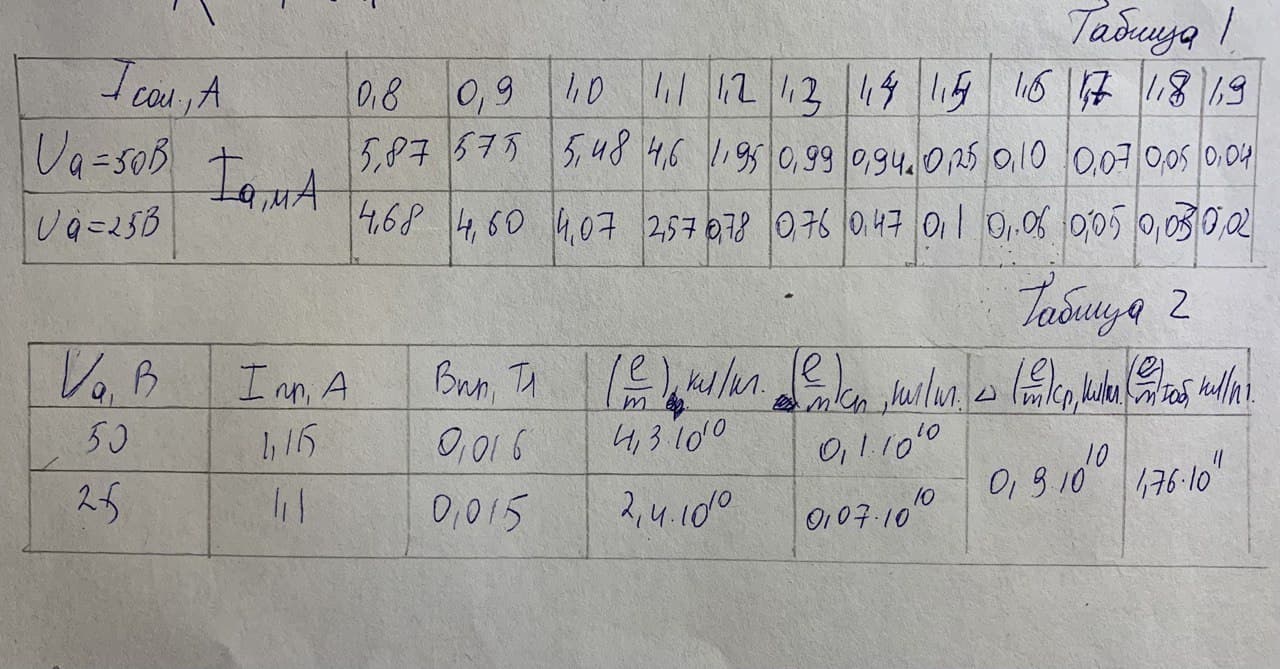 Таблица 1
I сол., А 0,8 0,9 1,0 1,1 1,2 1,3 1,4 1,5 1,6 1,7 1,8 1,9
Uа=50В Iа, мА 5,87 575 5,48 4,6 1,95 0,99 0,94 0,25 0,10 0,07 0,05 0,04
Uа=25В 4,68 4,60 4,07 2,57 0,78 0,76 0,47 0,1 0,06 0,05 0,03 0,02
Таблица 2
Uа, В Iпр, А Bпр, Тл (e/m), кл/кг. (e/m)ср, кл/кг. Δ(e/m)ср, кл/кг. (e/m)таб, кл/кг.
50 1,15 0,016 4,3·10¹⁰ 0,1·10¹⁰ 0,9·10¹⁰ 1,76·10¹¹
25 1,1 0,015 2,4·10¹⁰ 0,07·10¹⁰